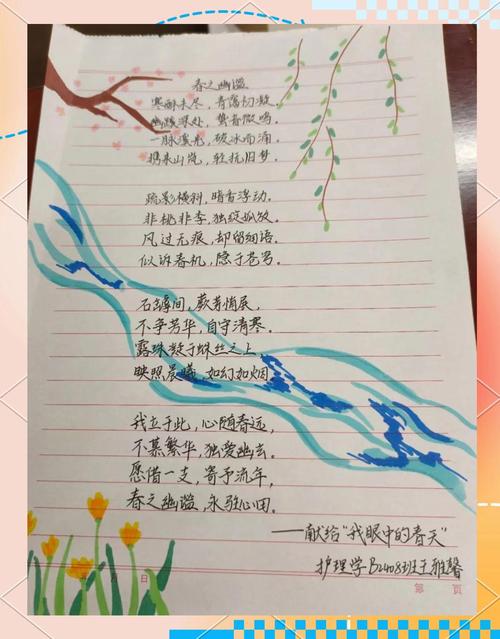 春之幽谧
寒酥未尽，青霭初凝。
幽蹊深处，莺音微鸣。
一脉溪光，破冰而涌。
携来山岚，轻抚旧梦。
疏影横斜，暗香浮动。
非桃非李，独绽孤放。
风过无痕，却留细语。
似诉春机，隐于苍穹。
石罅间，蕨芽悄展，
不争芳华，自守清寒。
露珠缀于蛛丝之上，
映照晨曦，如幻如烟。
我立于此，心随春远，
不慕繁华，独爱幽玄。
愿借一支，寄予流年，
春之幽谧，永驻心田。
——献给“我眼中的春天”
护理学B2408班王雅馨
月 日
第 页